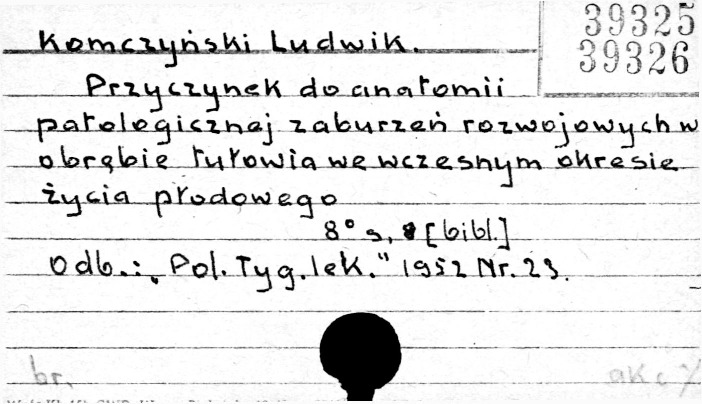 39325
39326
Komczyński Ludwik.
Przyczynek do anatomii
patologicznej zaburzeń rozwojowych w
obrębie tułowia we wczesnym okresie
życia płodowego
8° s, 8 [bibl.]
Odb.: „Pol. Tyg. lek." 1952 Nr. 23.
br.
akc